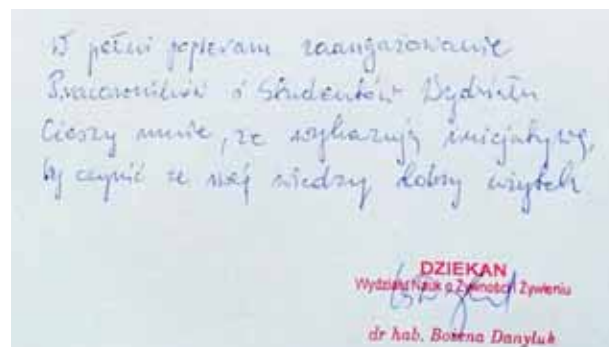 W pełni popieram zaangażowanie
Pracowników i Studentów Wydziału
Cieszy mnie, że wykazują inicjatywę,
by czynić ze swej wiedzy dobry użytek
DZIEKAN
Wydziału Nauk o Żywności i Żywieniu
dr hab. Bożena Danyluk